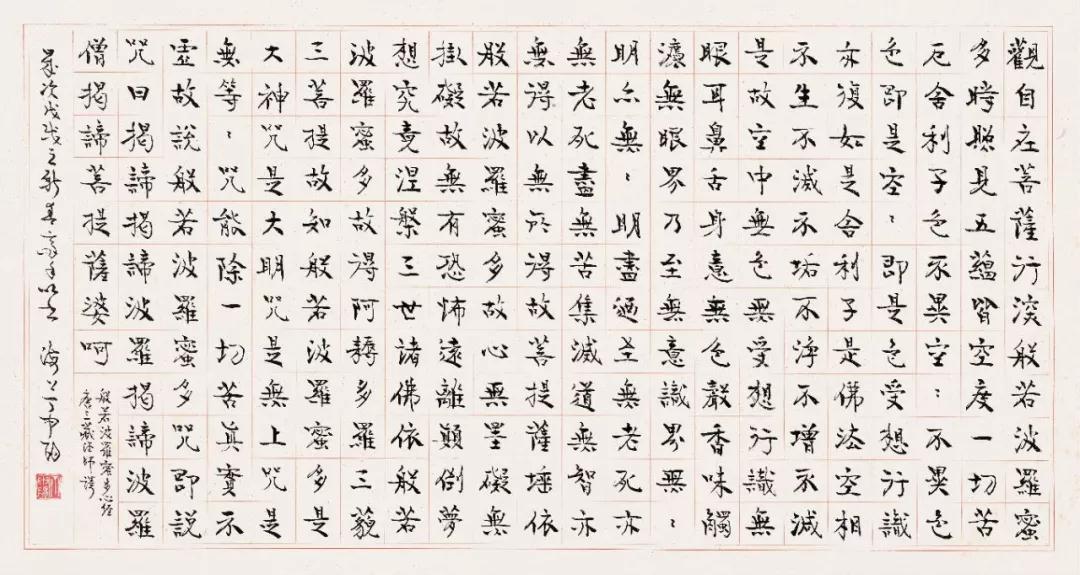 觀自在菩薩行深般若波羅蜜
多時照見五蘊皆空度一切苦
厄舍利子色不異空〻不異色
色即是空〻即是色受想行識
亦復如是舍利子是佛法空相
不生不滅不垢不淨不增不減
是故空中無色無受想行識無
眼耳鼻舌身意無色聲香味觸
灋無眼界乃至無意識界無〻
明亦無〻明盡迺至無老死亦
無老死盡無苦集滅道無智亦
無得以無所得故菩提薩埵依
般若波羅蜜多故心無罣礙無
掛礙故無有恐怖遠離顛倒夢
想究竟涅槃三世諸佛依般若
波羅蜜多故得阿耨多羅三藐
三菩提故知般若波羅蜜多是
大神咒是大明咒是無上咒是
無等〻咒能除一切苦真實不
虛故說般若波羅蜜多咒即說
咒曰揭諦揭諦波羅揭諦波羅
僧揭諦菩提薩婆呵
般若波羅蜜多心經
唐三藏法師譯
歲次戊戌之新春 海上丁申陽